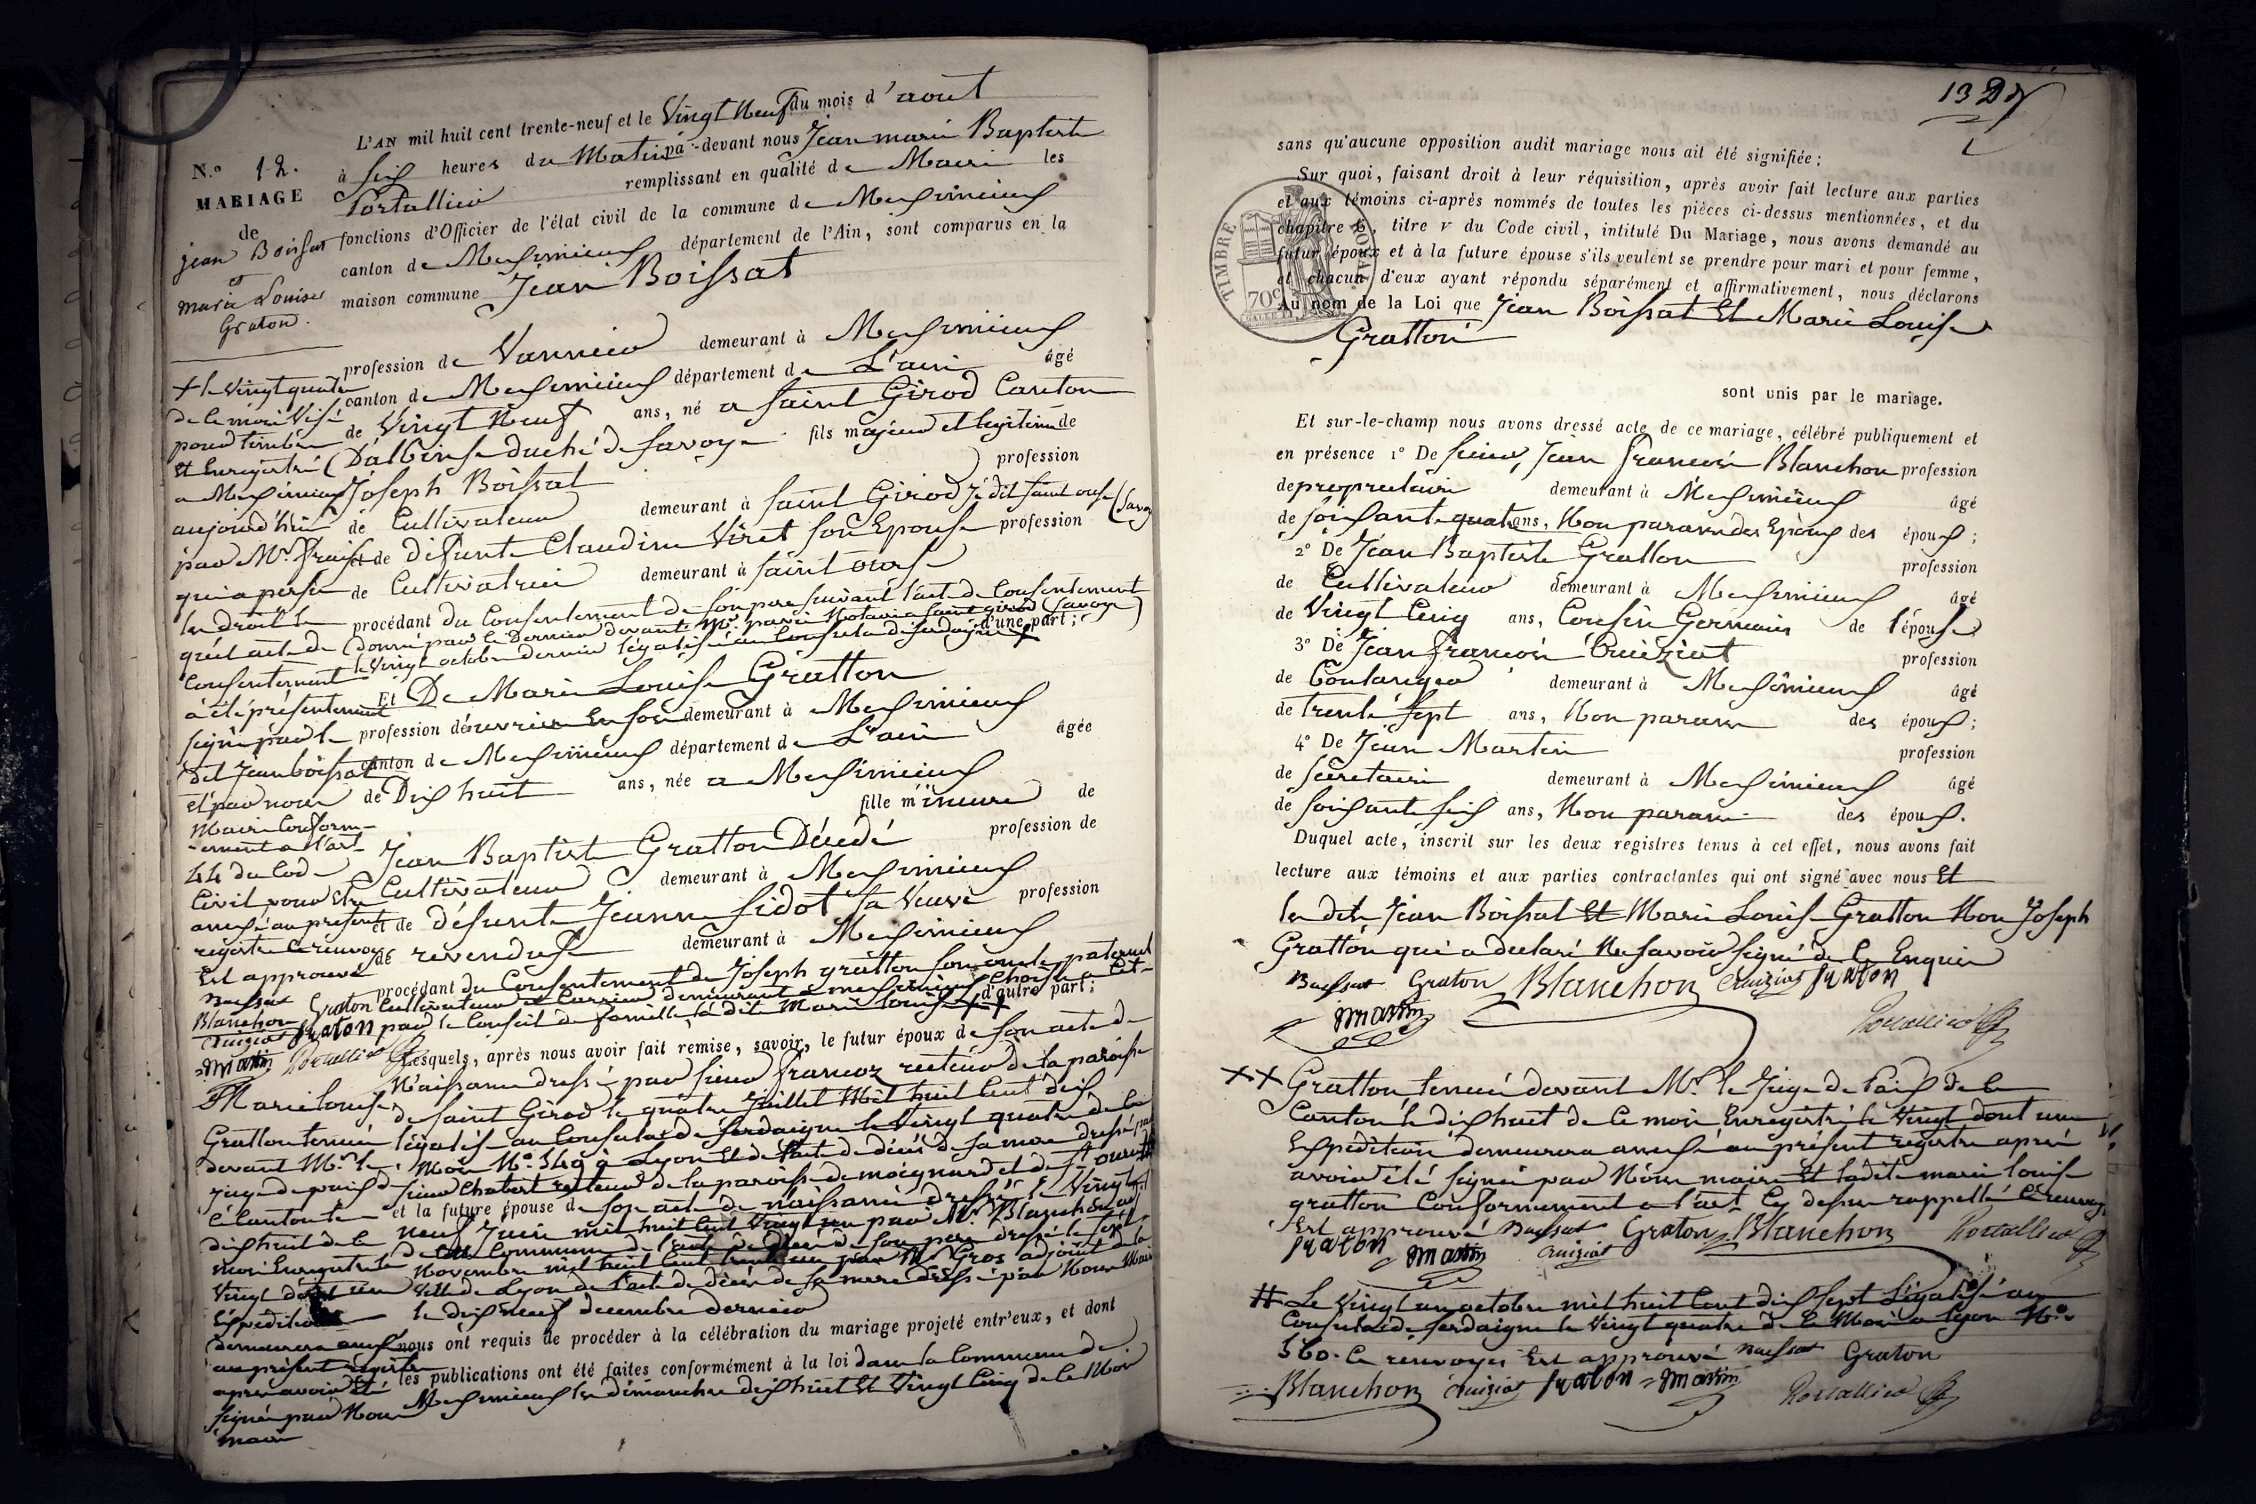 L'AN mil huit cent trente-neuf et le Vingt Neuf du mois d'aout
à six heures du Matin pà-devant nous Jean marie Baptiste
Portallier remplissant en qualité de Maire les
fonctions d'Officier de l'état civil de la commune de Meximieux
canton de Meximieux département de l'Ain, sont comparus en la
maison commune Jean Boissat
profession de Vannier demeurant à Meximieux
canton de Meximieux département de L'ain âgé
de Vingt Neuf ans, né a Saint Girod Canton
D'albens duché de Savoye fils majeur et legitime de
Joseph Boissat profession
de Cultivateur demeurant à Saint Girod
et de défunte Claudine Viret son Epouse profession
de Cultivatrice demeurant à Saint ours
procédant du Consentement de son pere suivant l'acte de Consentement
d'une part;
Et De Marie Louise Gratton
profession d'ouvriere En soie demeurant à Meximieux
canton de Meximieux département de L'ain âgée
de Dix huit ans, née a Meximieux
fille mineure de
Jean Baptiste Gratton Décédé profession de
Cultivateur demeurant à Meximieux
et de défunte Jeanne Sidot sa Veuve profession
de revendeuse demeurant à Meximieux
procédant du Consentement de Joseph gratton son oncle paternel
d'autre part;
Lesquels, après nous avoir fait remise, savoir, le futur époux de son acte de
Naissance dressé par sieur francoz recteur de la paroisse
de Saint Girod le quatre Juillet Mil huit Cent dix
légalisé au Consulat de Sardaigne le Vingt quatre de ce
Mois No. 540 à Lyon Et de l'acte de décès de sa mere dressé par
sieur Chabert recteur de la paroisse de
et la future épouse de son acte de naissance dressé le Vingt
neuf Juin mil huit Cent Vingt un par Mr. Blanchon
Novembre mil huit Cent trente un par Mr. Gros adjoint de la
Ville de Lyon de l'acte de décès de sa mere dressé par Nous Maire
le dix neuf decembre dernier
nous ont requis de procéder à la célébration du mariage projeté entr'eux, et dont
les publications ont été faites conformément à la loi dans la Commune de
Meximieux les dimanches dix huit Et Vingt Cinq de ce Mois
N.o 12.
MARIAGE
de
jean Boissat
et
marie Louise
Graton.
+ le Vingt quatre
de ce mois Visé
pour timbre
Et Enregistré
a Meximieux
aujourd'hui
par Mr.
qui a perçu
les droits
acte de
Consentement
a été présentement
signé par le
dit Jean boissat
et par nous
Maire Conform-
-ement a l'art.
44 du Code
Civil pour Etre
annexé au present
registre Ce renvoy
Est approuvé
Boissat Graton
Blanchon
Cruiziat graton
Martin Portallier
Marie louise
Gratton tenue
devant Mr. le
juge de paix de
ce Canton le
dix huit de ce
mois Enregistré le
Vingt dont une
Expédition
demeurera annexé
au présent registre
apres avoir Eté
signé par Nous
maire
13
sans qu'aucune opposition audit mariage nous ait été signifiée;
Sur quoi, faisant droit à leur réquisition, après avoir fait lecture aux parties
et aux témoins ci-après nommés de toutes les pièces ci-dessus mentionnées, et du
chapitre 6, titre v du Code civil, intitulé Du Mariage, nous avons demandé au
futur époux et à la future épouse s'ils veulent se prendre pour mari et pour femme,
et chacun d'eux ayant répondu séparément et affirmativement, nous déclarons
Au nom de la Loi que Jean Boissat Et Marie Louise
Gratton
sont unis par le mariage.
TIMBRE ROYAL
70c
Et sur-le-champ nous avons dressé acte de ce mariage, célébré publiquement et
en présence 1° De sieur Jean francois Blanchon profession
de propriétaire demeurant à Meximieux âgé
de soixante quatre ans, Non parent des Epoux des époux;
2° De Jean Baptiste Gratton profession
de Cultivateur demeurant à Meximieux âgé
de Vingt Cinq ans, Cousin Germain de l'épouse
3° De Jean francois Cruiziat profession
de Boulanger demeurant à Meximieux âgé
de trente Sept ans, Non parent des époux;
4° De Jean Martin profession
de Secretaire demeurant à Meximieux âgé
de soixante six ans, Non parent des époux.
Duquel acte, inscrit sur les deux registres tenus à cet effet, nous avons fait
lecture aux témoins et aux parties contractantes qui ont signé avec nous Et
les dits Jean Boissat Et Marie Louise Gratton Non Joseph
Gratton qui a declaré Ne Savoir Signé de Ce Enquis
Boissat Graton Blanchon Cruiziat graton
Martin Portallier
++ Gratton tenue devant Mr. le Juge de Paix de Ce
Canton le dix huit de Ce mois Enregistré le Vingt dont une
Expédition demeurera annexé au présent registre après
avoir été signé par Nous maire Et ladite marie louise
gratton Conformement a l'art. Cy dessus rappellé Ce renvoy
Est approuvé Boissat Graton Blanchon Portallier
graton Martin Cruiziat
# Le Vingt un octobre mil huit Cent dix Sept Légalisé au
Consulat de Sardaigne le Vingt quatre de Ce Mois a Lyon No.
560. Ce renvoy Est approuvé Boissat Graton
Blanchon Cruiziat graton Martin Portallier